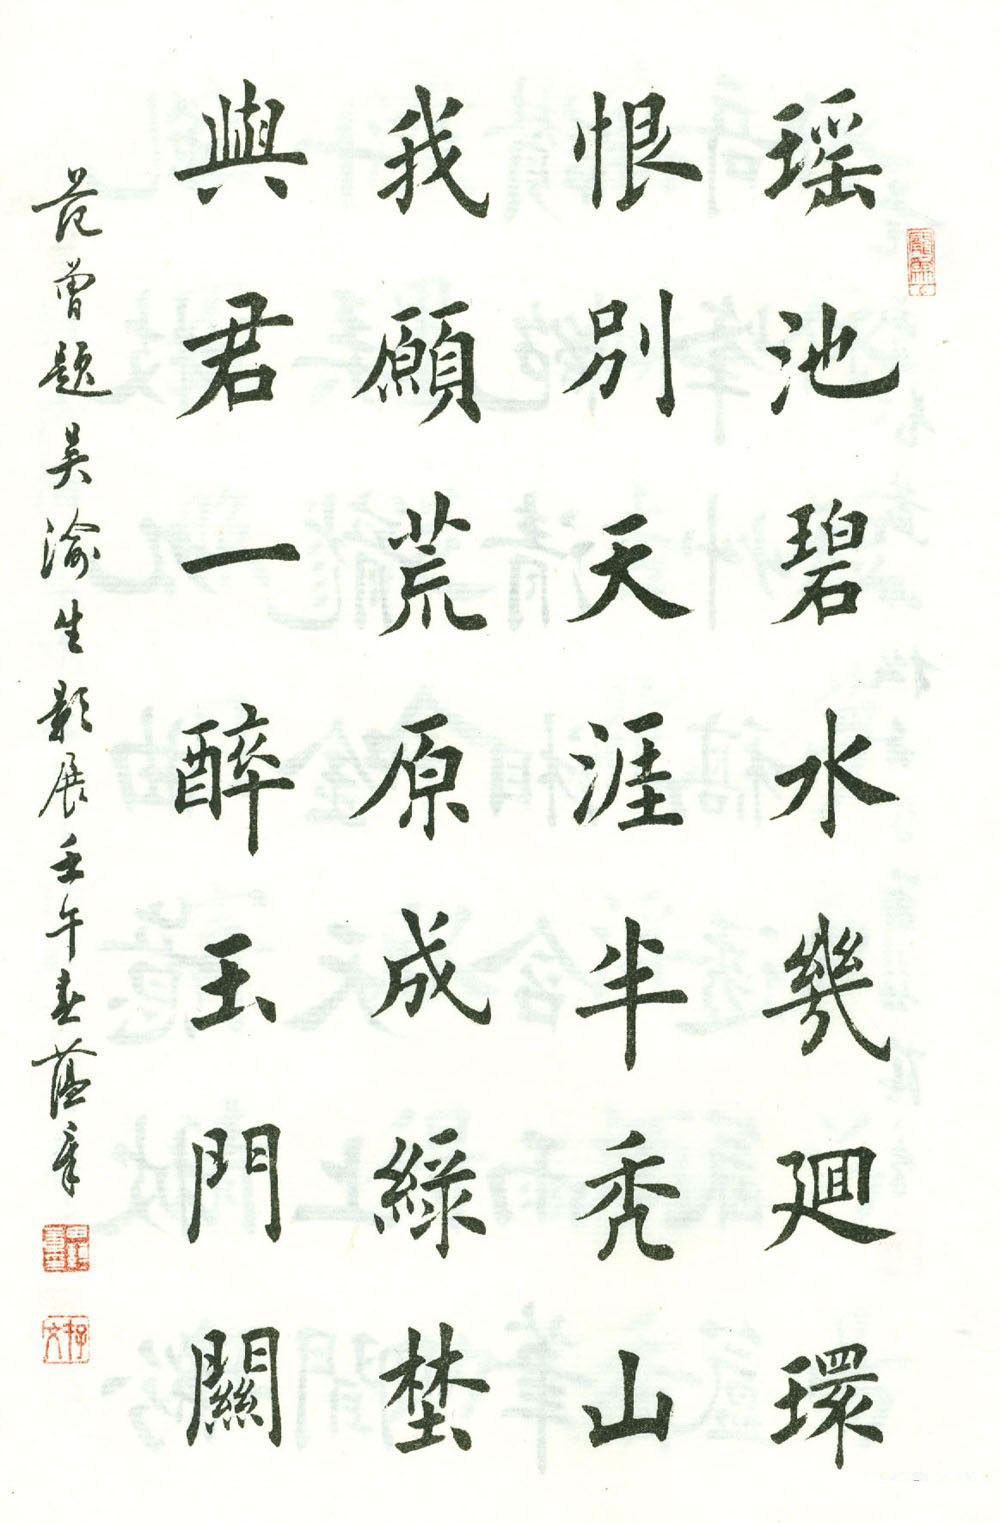 瑶池碧水幾迴環
恨別天涯半秃山
我願荒原成綠埜
與君一醉玉門關
范曾題吴渝生影展壬午春蕴章